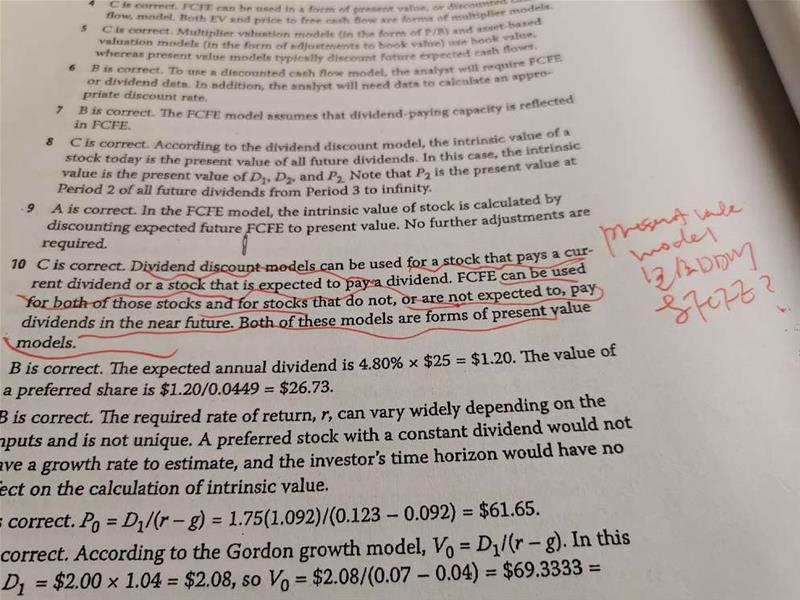 4 C is correct. FCFE can be used in a form of present value, or discounted cash
flow, model. Both EV and price to free cash flow are forms of multiplier models.
5 C is correct. Multiplier valuation models (in the form of P/B) and asset-based
valuation models (in the form of adjustments to book value) use book value,
whereas present value models typically discount future expected cash flows.
6 B is correct. To use a discounted cash flow model, the analyst will require FCFE
or dividend data. In addition, the analyst will need data to calculate an appro-
priate discount rate.
7 B is correct. The FCFE model assumes that dividend-paying capacity is reflected
in FCFE.
8 C is correct. According to the dividend discount model, the intrinsic value of a
stock today is the present value of all future dividends. In this case, the intrinsic
value is the present value of D₁, D₂, and P₂. Note that P₂ is the present value at
Period 2 of all future dividends from Period 3 to infinity.
9 A is correct. In the FCFE model, the intrinsic value of stock is calculated by
discounting expected future FCFE to present value. No further adjustments are
required.
10 C is correct. Dividend discount models can be used for a stock that pays a cur-
rent dividend or a stock that is expected to pay a dividend. FCFE can be used
for both of those stocks and for stocks that do not, or are not expected to, pay
dividends in the near future. Both of these models are forms of present value
models.
present
model
DDM
FCFE?
B is correct. The expected annual dividend is 4.80% × $25 = $1.20. The value of
a preferred share is $1.20/0.0449 = $26.73.
B is correct. The required rate of return, r, can vary widely depending on the
nputs and is not unique. A preferred stock with a constant dividend would not
ave a growth rate to estimate, and the investor's time horizon would have no
fect on the calculation of intrinsic value.
s correct. P₀ = D₁/(r – g) = 1.75(1.092)/(0.123 – 0.092) = $61.65.
correct. According to the Gordon growth model, V₀ = D₁/(r – g). In this
D₁ = $2.00 × 1.04 = $2.08, so V₀ = $2.08/(0.07 – 0.04) = $69.3333 =